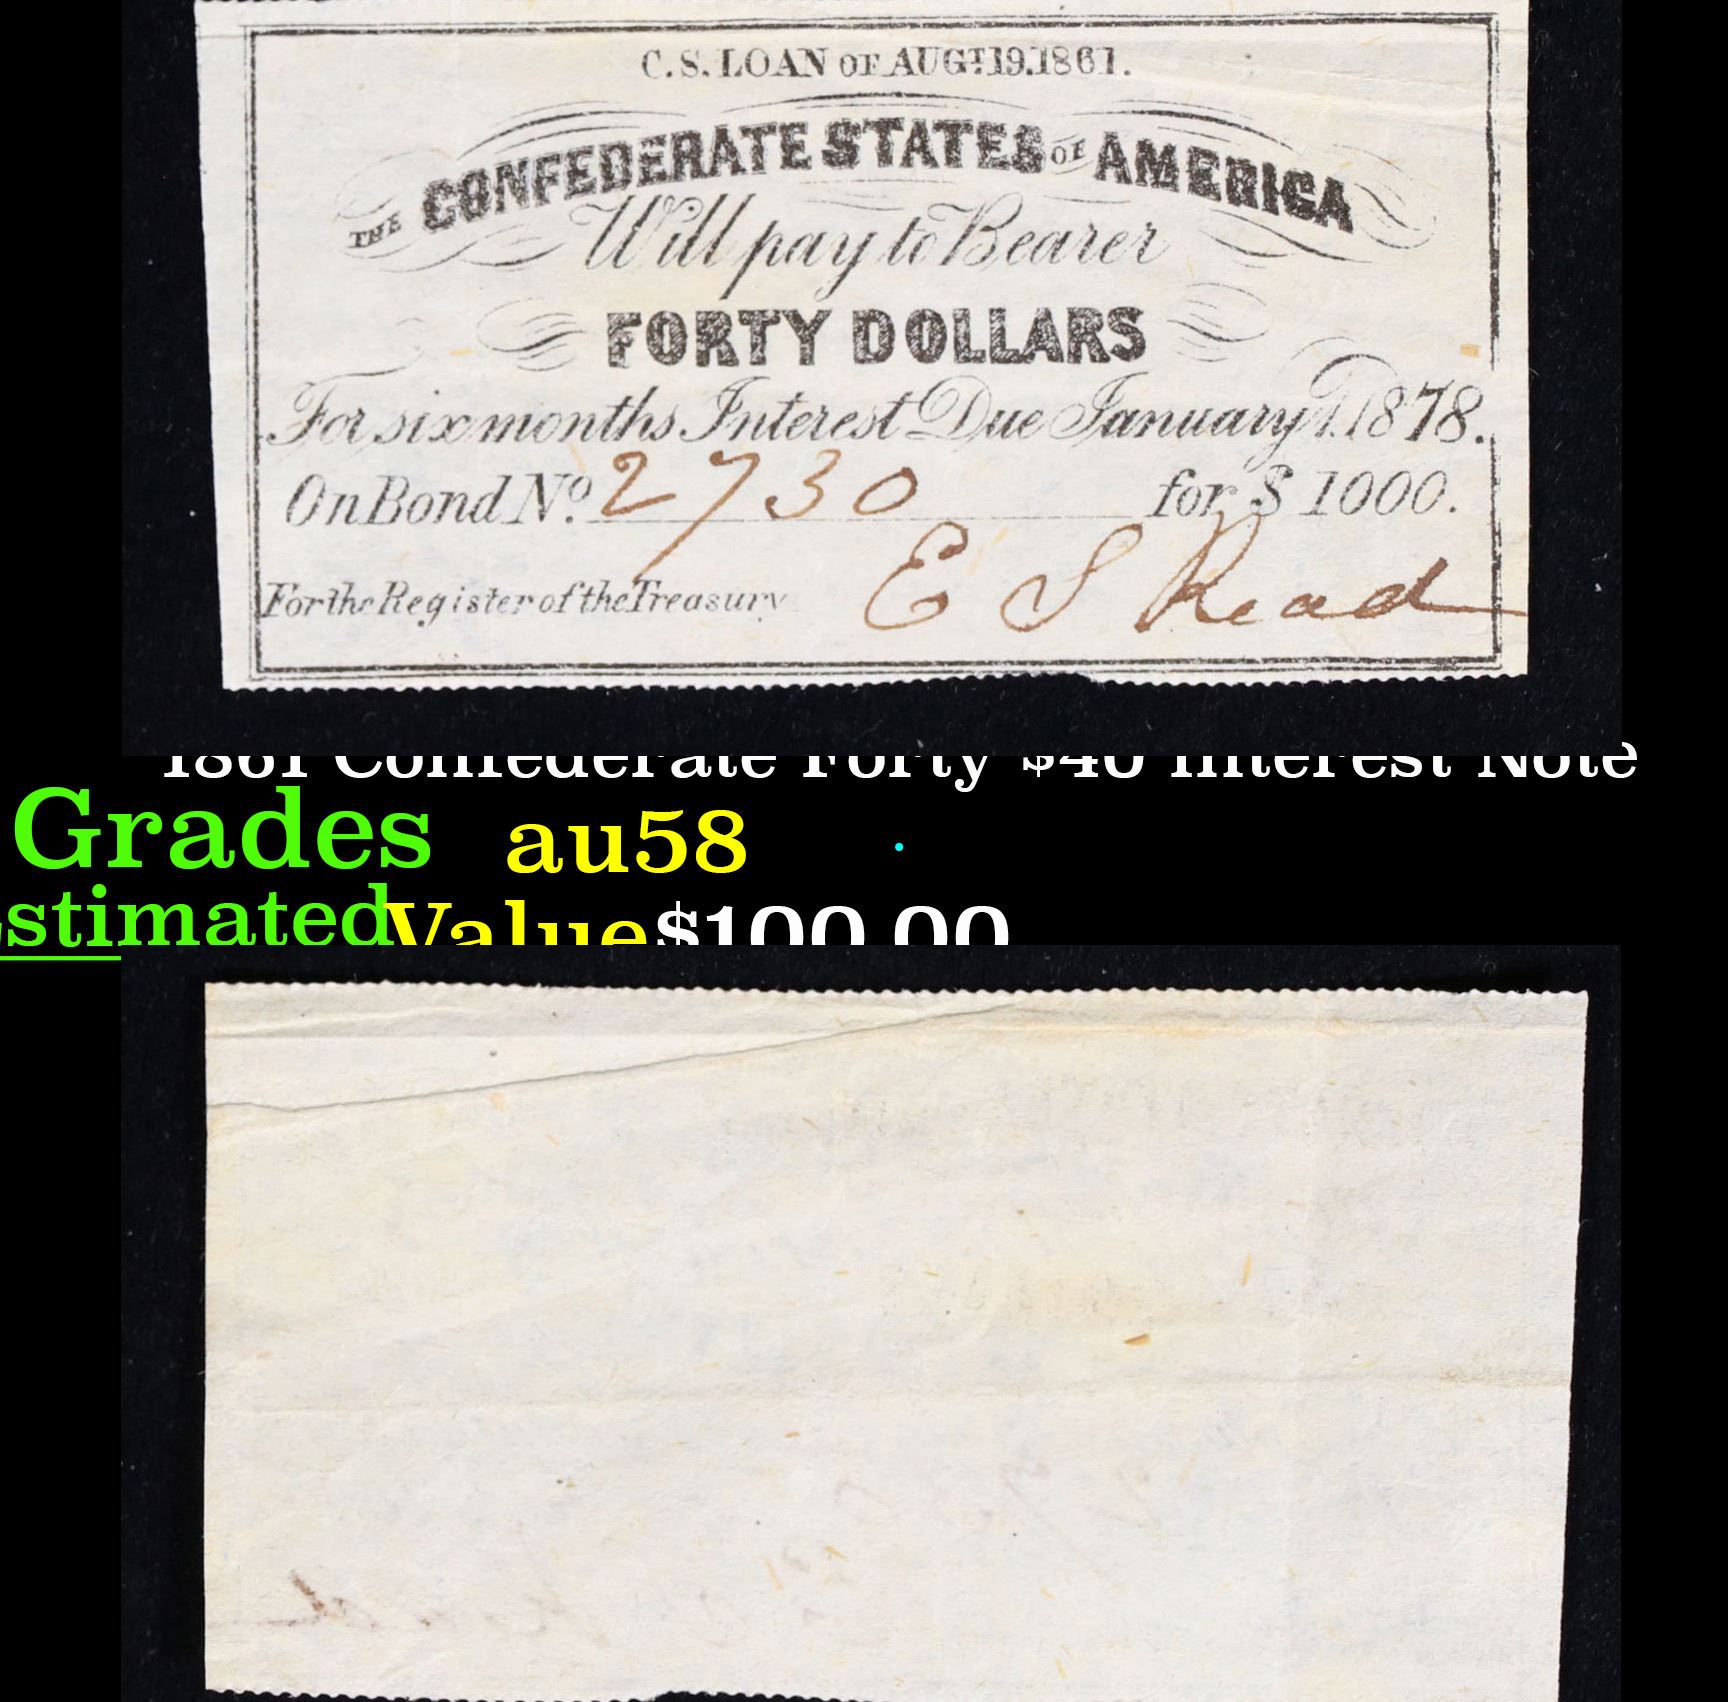 C. S. LOAN OF AUGT. 19. 1861.
THE CONFEDERATE STATES OF AMERICA
Will pay to Bearer
FORTY DOLLARS
For six months Interest Due January 1. 1878.
On Bond No. 2730 for $ 1000.
For the Register of the Treasury E S Read
1861 Confederate Forty $40 Interest Note
Grades au58
stimated Value $100.00